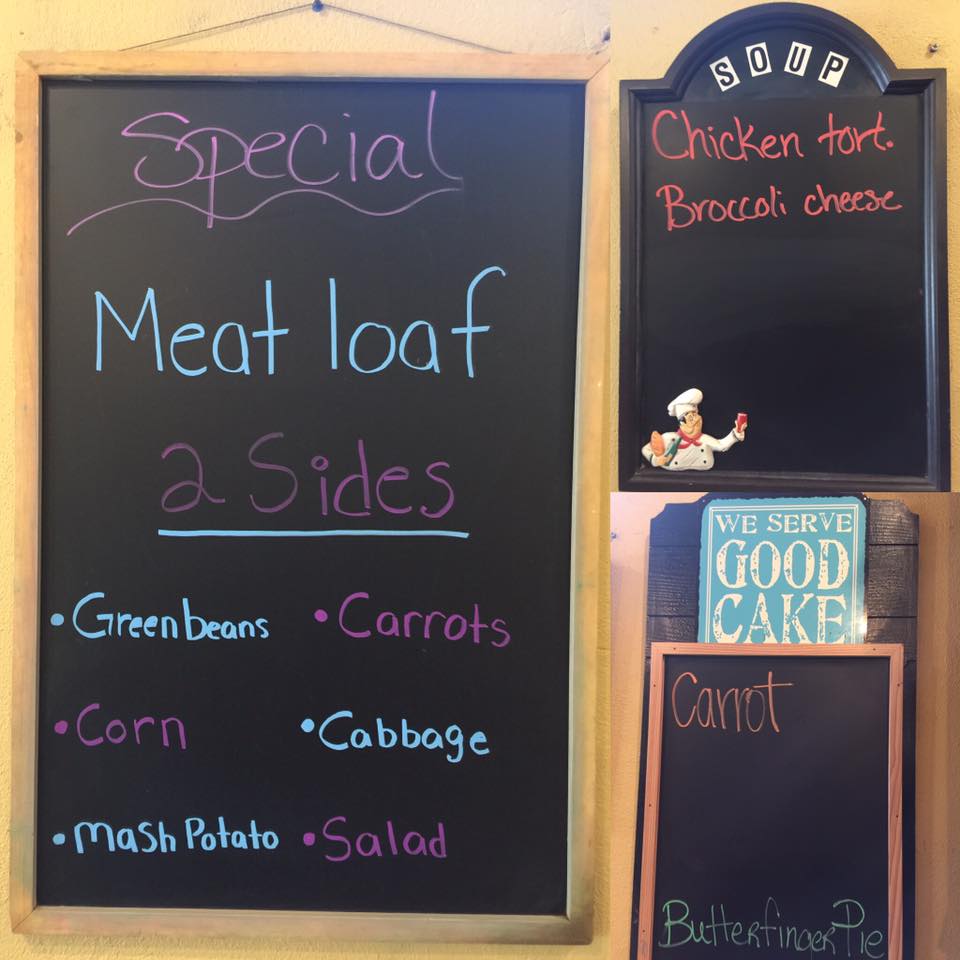 Special
Meat loaf
2 Sides
• Greenbeans • Carrots
• Corn • Cabbage
• Mash Potato • Salad
SOUP
Chicken tort.
Broccoli cheese
WE SERVE
GOOD
CAKE
Carrot
Butterfinger Pie